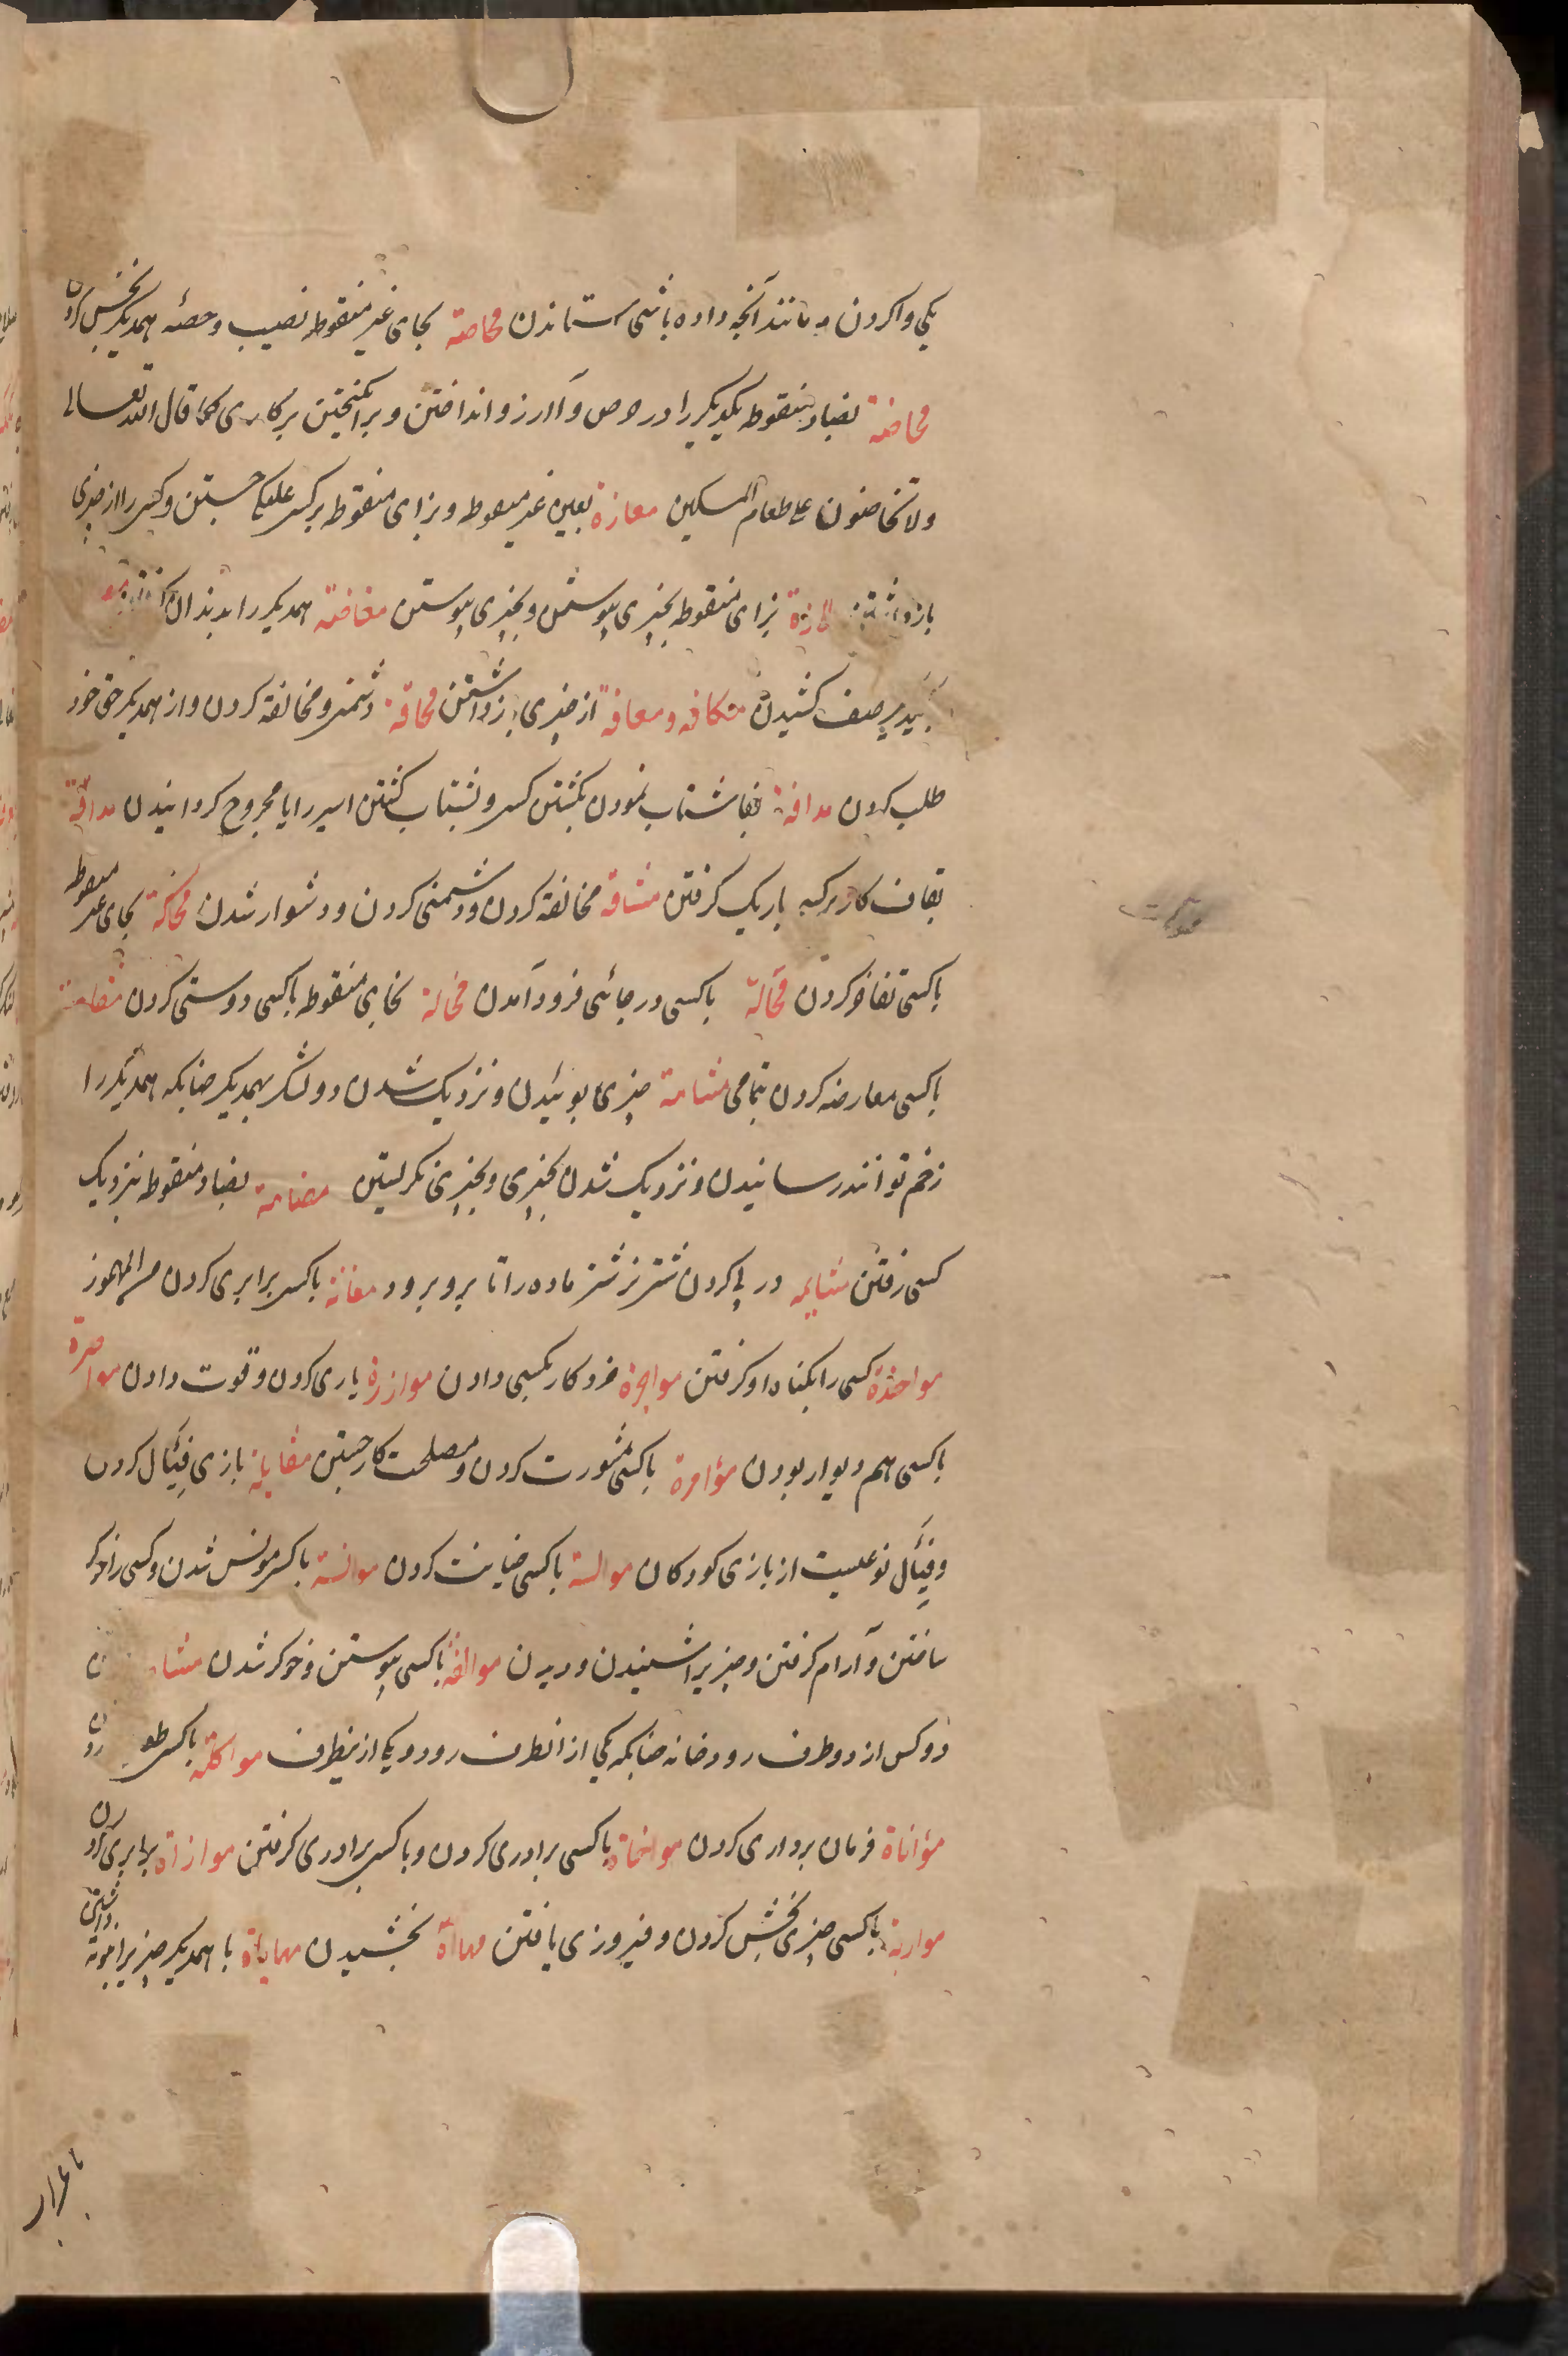 یکی وا کردن و مانند آنچه داده باشی ستاندن محاصّة بحای غیر منقوطه نصیب و حصّه همدیگر بخش کردن
محاضّة بضاد منقوطه یکدیگر را در حرص و آرزو انداختن و برانگیختن بر کاری کما قال الله تعالی
ولا تحاضون علی طعام المسکین معازّة بعین غیر منقوطه و بزای منقوطه بر کسی غلبگی جستن و کسی را از چیزی
باز داشتن لازّة بزای منقوطه بچیزی پیوستن و بچیزی پیوستن معاضّة همدیگر را بدندان
صف کشیدن مکافه و معافة از چیزی باز داشتن محاقّة دشمنی و مخالفة کردن و از همدیگر حق خود
طلب کردن مدافّة بفا شتاب نمودن بکشتن کسی و بشتاب کشتن اسیر را یا مجروح گردانیدن مداقّة
بقاف کار بر کسی باریک گرفتن مشاقّة مخالفة کردن و دشمنی کردن و دشوار شدن محاکّة بحای غیر منقوطه
باکسی تفاخر کردن محالّة باکسی در جائی فرود آمدن مخالّة بخای منقوطه باکسی دوستی کردن
باکسی معارضه کردن بتمامی مشامّة چیزی بوئیدن و نزدیک شدن دو لشکر بهمدیگر چنانکه همدیگر را
زخم توانند رسانیدن و نزدیک شدن بچیزی و بچیزی نگریستن مضامّة بضاد منقوطه بنزدیک
کسی رفتن در پی کردن شتر نر شتر ماده را تا برو برود معانّة باکسی برابری کردن من المهموز
مواخذة کسی را بگناه او گرفتن مواجرة مزد کار بکسی دادن موازرة یاری کردن و قوت دادن مواصرة
باکسی هم دیوار بودن مؤامرة باکسی مشورت کردن و مصلحت کار جستن مفایلة بازی فِئَال کردن
و فِئَال نوعیست از بازی کودکان موالسة باکسی خیانت کردن موانسة باکسی مونس شدن و کسی را خوگر
ساختن و آرام گرفتن و چیزیرا شنیدن و دیدن موالفة باکسی پیوستن و خوگر شدن
دو کس از دو طرف رودخانه چنانکه یکی از آنطرف رود و یکی از ینطرف مواکلة باکسی
مؤاتاة فرمان برداری کردن مواخاة باکسی برادری کردن و باکسی برادری گرفتن موازاة برابری کردن
مواربة باکسی چیزی بخش کردن و فیروزی یافتن مهاأة بخشیدن مهایاة با همدیگر چیزیرا بنوبة داشتن